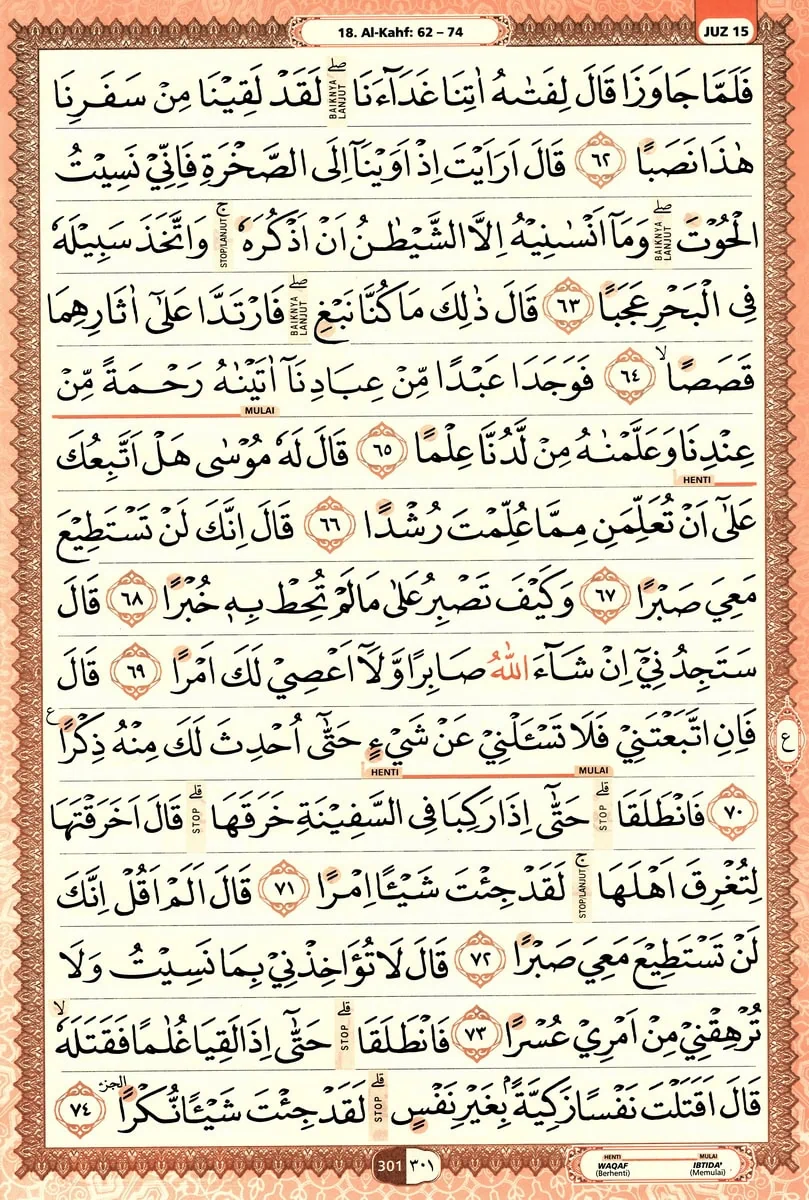 18. Al-Kahf: 62 – 74
JUZ 15
فَلَمَّا جَاوَزَا قَالَ لِفَتٰىهُ اٰتِنَا غَدَاۤءَنَاۖ BAIKNYA LANJUT لَقَدْ لَقِيْنَا مِنْ سَفَرِنَا
هٰذَا نَصَبًا ﴿٦٢﴾ قَالَ اَرَاَيْتَ اِذْ اَوَيْنَآ اِلَى الصَّخْرَةِ فَاِنِّيْ نَسِيْتُ
الْحُوْتَۖ BAIKNYA LANJUT وَمَآ اَنْسٰىنِيْهُ اِلَّا الشَّيْطٰنُ اَنْ اَذْكُرَهٗۚ STOP/LANJUT وَاتَّخَذَ سَبِيْلَهٗ
فِى الْبَحْرِ عَجَبًا ﴿٦٣﴾ قَالَ ذٰلِكَ مَا كُنَّا نَبْغِۖ BAIKNYA LANJUT فَارْتَدَّا عَلٰٓى اٰثَارِهِمَا
قَصَصًاۙ ﴿٦٤﴾ فَوَجَدَا عَبْدًا مِّنْ عِبَادِنَآ اٰتَيْنٰهُ رَحْمَةً مِّنْ
MULAI
عِنْدِنَا وَعَلَّمْنٰهُ مِنْ لَّدُنَّا عِلْمًا ﴿٦٥﴾ قَالَ لَهٗ مُوْسٰى هَلْ اَتَّبِعُكَ
HENTI
عَلٰٓى اَنْ تُعَلِّمَنِ مِمَّا عُلِّمْتَ رُشْدًا ﴿٦٦﴾ قَالَ اِنَّكَ لَنْ تَسْتَطِيْعَ
مَعِيَ صَبْرًا ﴿٦٧﴾ وَكَيْفَ تَصْبِرُ عَلٰى مَا لَمْ تُحِطْ بِهٖ خُبْرًا ﴿٦٨﴾ قَالَ
سَتَجِدُنِيْٓ اِنْ شَاۤءَ اللّٰهُ صَابِرًا وَّلَآ اَعْصِيْ لَكَ اَمْرًا ﴿٦٩﴾ قَالَ
فَاِنِ اتَّبَعْتَنِيْ فَلَا تَسْـَٔلْنِيْ عَنْ شَيْءٍ حَتّٰٓى اُحْدِثَ لَكَ مِنْهُ ذِكْرًا ع
ع
MULAI HENTI
﴿٧٠﴾ فَانْطَلَقَاۗ STOP حَتّٰٓى اِذَا رَكِبَا فِى السَّفِيْنَةِ خَرَقَهَاۗ STOP قَالَ اَخَرَقْتَهَا
لِتُغْرِقَ اَهْلَهَاۚ STOP/LANJUT لَقَدْ جِئْتَ شَيْـًٔا اِمْرًا ﴿٧١﴾ قَالَ اَلَمْ اَقُلْ اِنَّكَ
لَنْ تَسْتَطِيْعَ مَعِيَ صَبْرًا ﴿٧٢﴾ قَالَ لَا تُؤَاخِذْنِيْ بِمَا نَسِيْتُ وَلَا
تُرْهِقْنِيْ مِنْ اَمْرِيْ عُسْرًا ﴿٧٣﴾ فَانْطَلَقَاۗ STOP حَتّٰٓى اِذَا لَقِيَا غُلٰمًا فَقَتَلَهٗۙ
قَالَ اَقَتَلْتَ نَفْسًا زَكِيَّةً ۢبِغَيْرِ نَفْسٍۗ STOP لَقَدْ جِئْتَ شَيْـًٔا نُّكْرًا الجزء ﴿٧٤﴾
301 ٣٠١
HENTI MULAI
WAQAF IBTIDA'
(Berhenti) (Memulai)